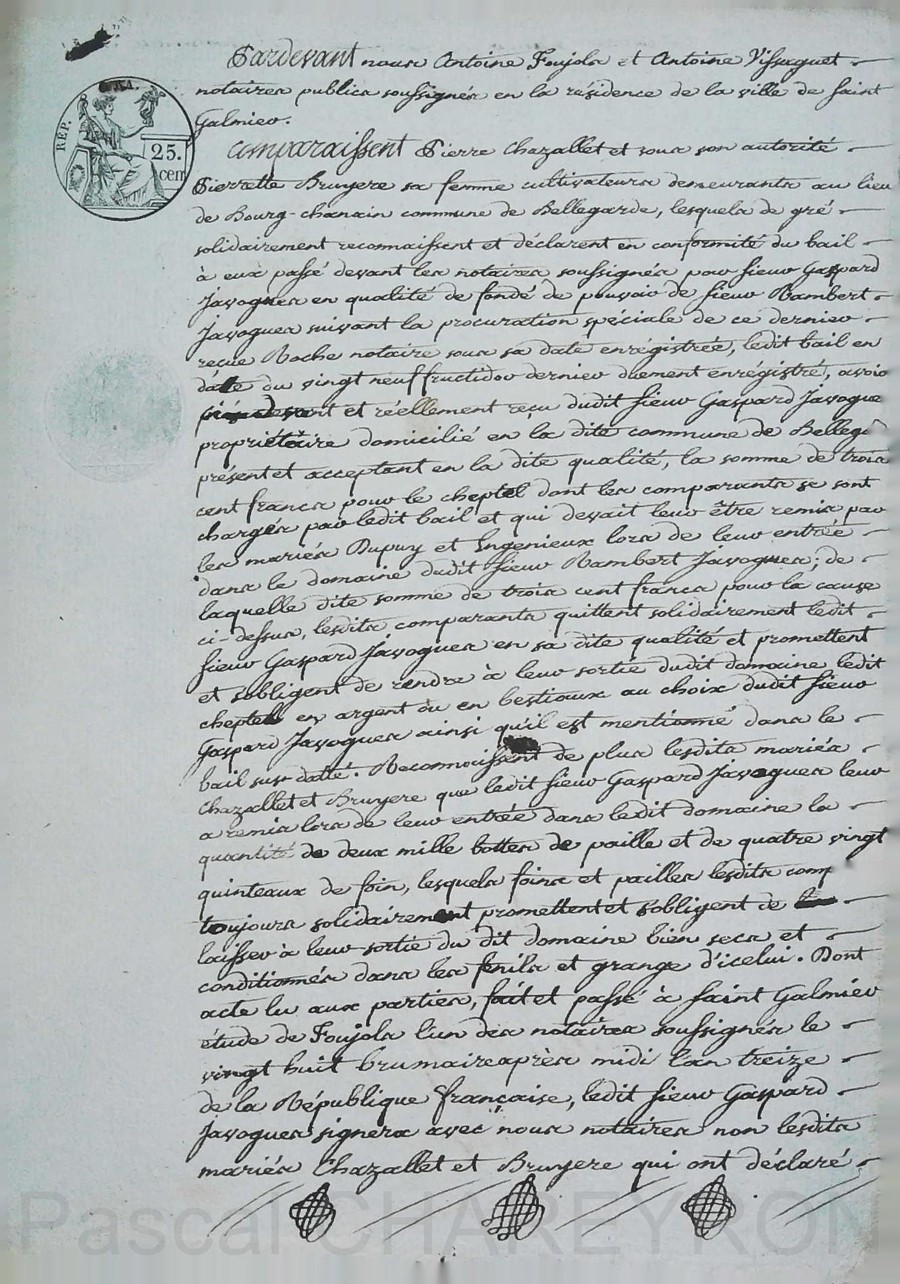 REP. FRA.
25.
cen
Pardevant nous Antoine Foujols et Antoine Vissaguet
notaires publics soussignés en la résidence de la ville de Saint
Galmier.
Comparaissent Pierre Chazallet et sous son autorité
Pierrette Bruyere sa femme cultivateurs demeurants au lieu
de Bourg-chanain commune de Bellegarde, lesquels de gré
solidairement reconnaissent et déclarent en conformité du bail
à eux passé devant les notaires soussignés pour sieur Gaspard
Javogues en qualité de fondé de pouvoir de sieur Rambert
Javogues suivant la procuration spéciale de ce dernier
reçue Roche notaire sous sa date enrégistrée, ledit bail en
date du vingt neuf fructidor dernier duement enrégistré, avoir
et réellement reçu dudit sieur Gaspard Javogue
propriétaire domicilié en la dite commune de Bellega
présent et acceptant en la dite qualité, la somme de trois
cent francs pour le cheptel dont les comparants se sont
chargés par ledit bail et qui devait leur être remis par
les mariés Dupuy et Ingenieux lors de leur entrée
dans le domaine dudit sieur Rambert Javogues; de
laquelle dite somme de trois cent francs pour la cause
ci-dessus, lesdits comparants quittent solidairement ledit
sieur Gaspard Javogues en sa dite qualité et promettent
et sobligent de rendre à leur sortie dudit domaine ledit
cheptel en argent ou en bestiaux au choix dudit sieur
Gaspard Javogues ainsi qu'il est mentionné dans le
bail sus-datté. Reconnoissent de plus lesdits mariés
Chazallet et Bruyere que ledit sieur Gaspard Javogues leur
a remis lors de leur entrée dans ledit domaine la
quantité de deux mille bottes de paille et de quatre vingt
quinteaux de foin, lesquels foins et pailles lesdits comp
toujours solidairement promettent et sobligent de
laisser à leur sortie du dit domaine bien secs et
conditionnés dans les fenils et grange d'icelui. Dont
acte lu aux parties, fait et passé à Saint Galmier
étude de Foujols l'un des notaires soussignés le
vingt huit brumaire après midi l'an treize
de la République française, ledit sieur Gaspard
Javogues signera avec nous notaires non lesdits
mariés Chazallet et Bruyere qui ont déclaré
Pascal CHAREYRON